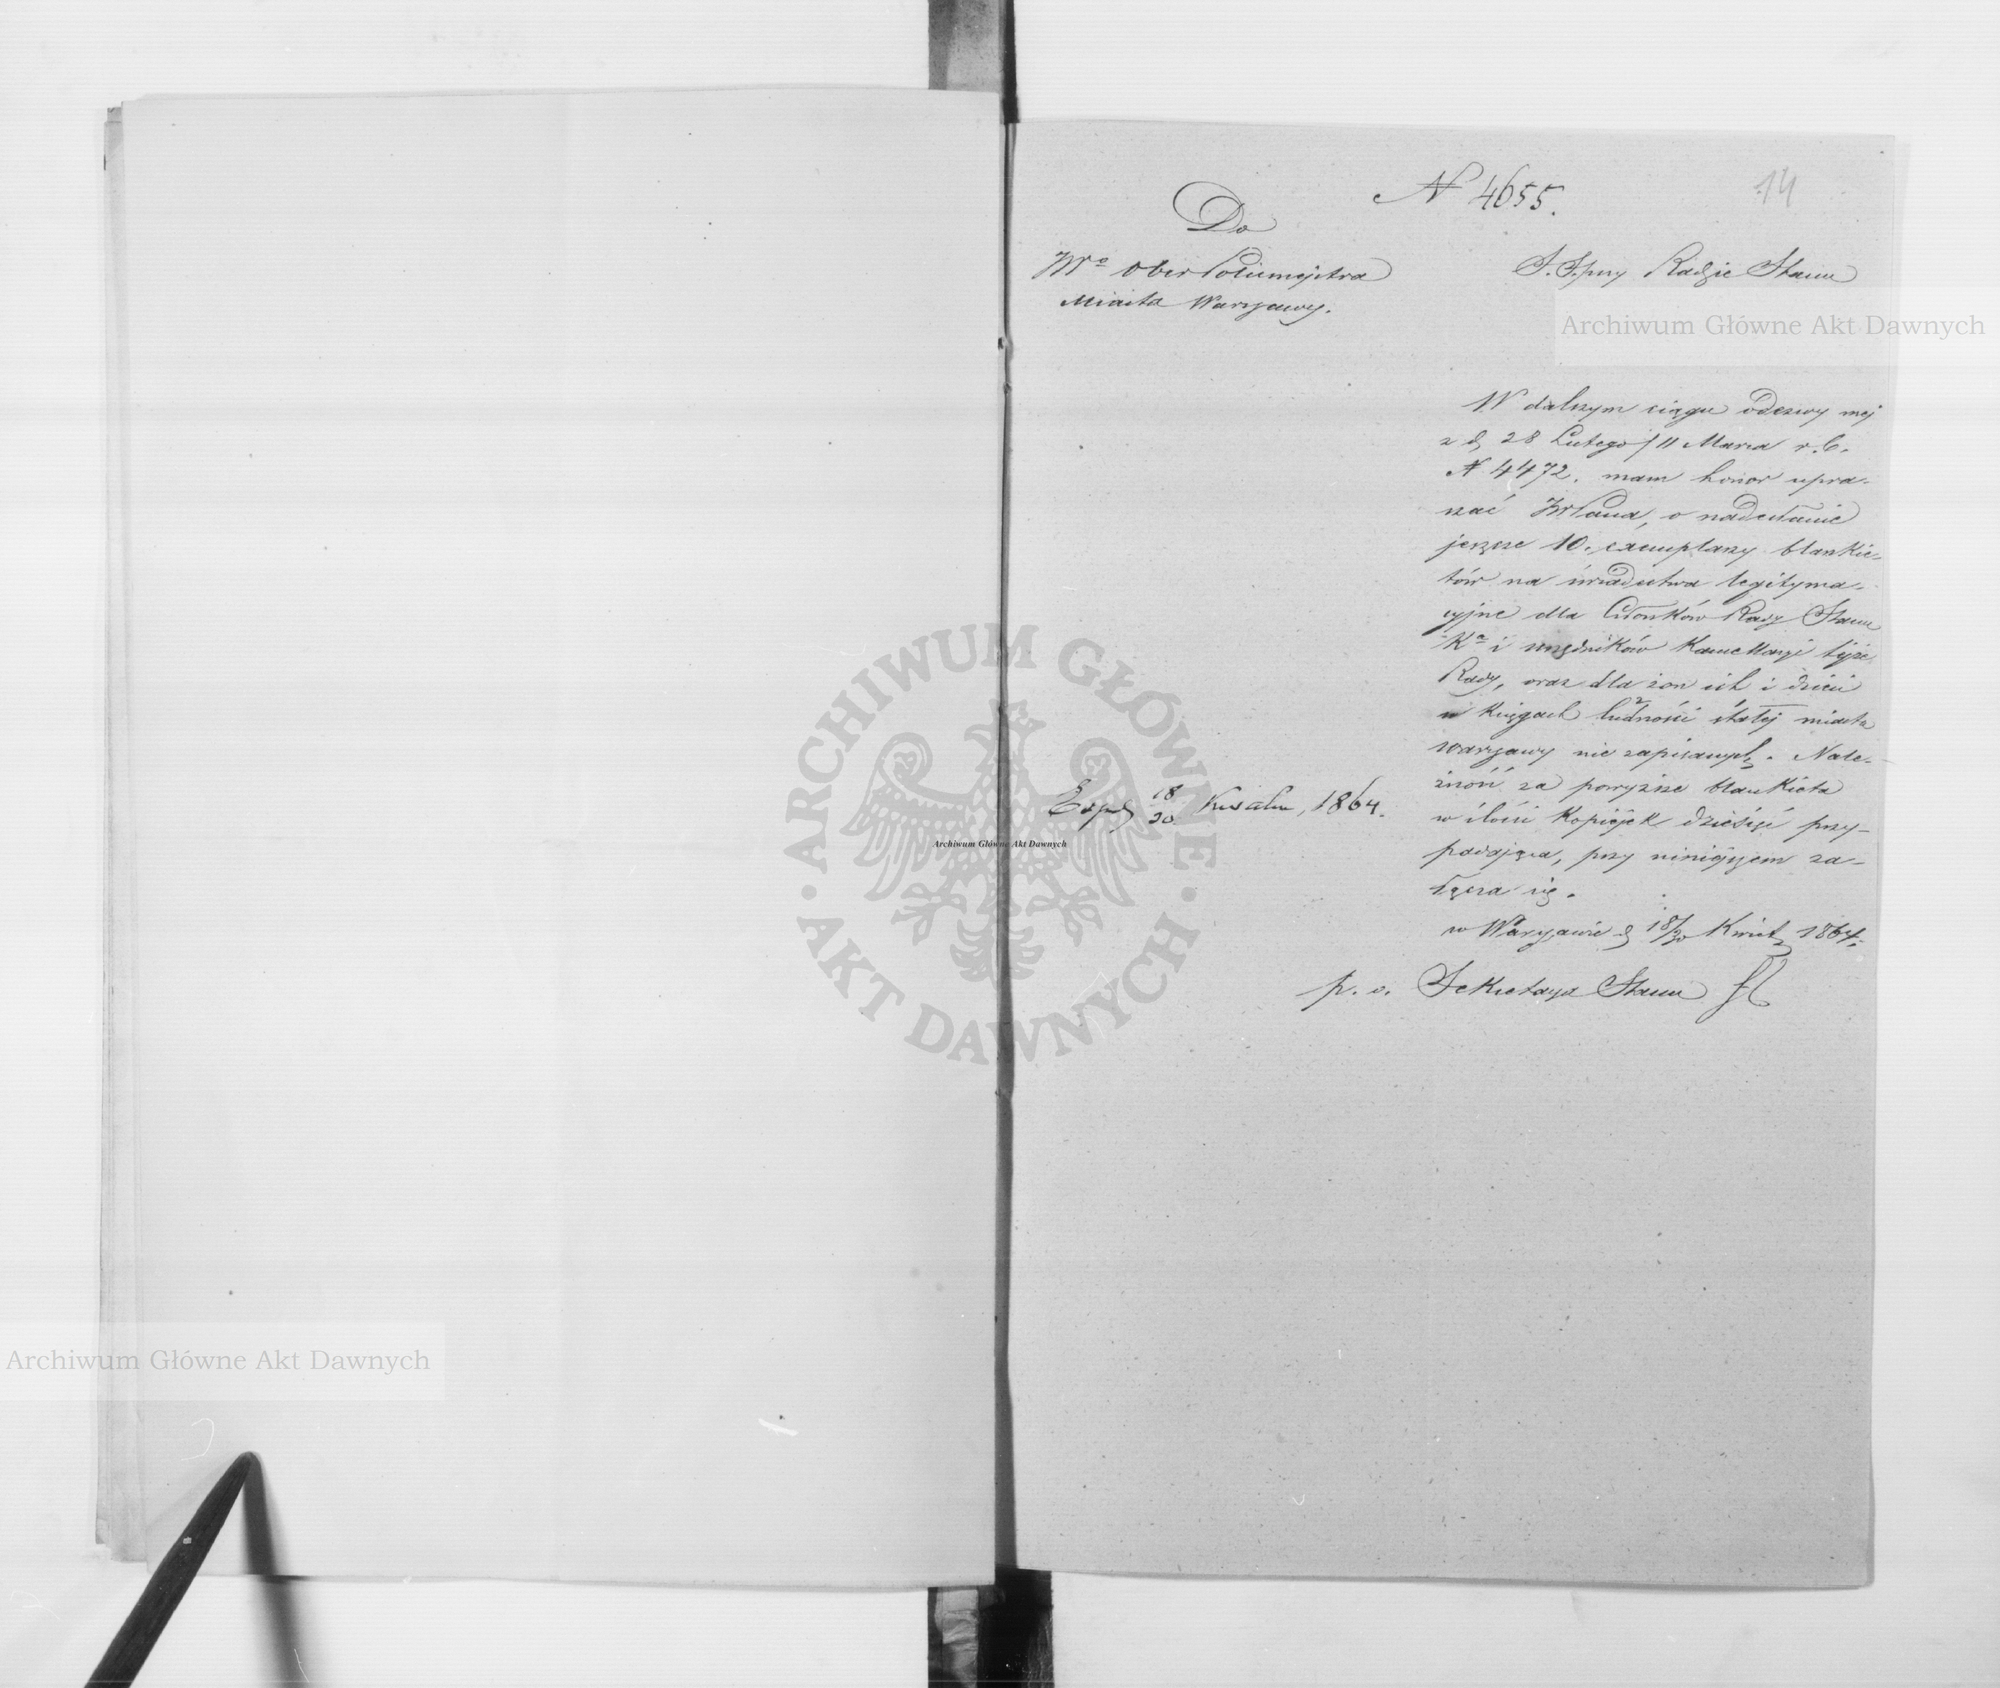 N 4655.
14
Do
JWo Ober Policmejstra
Miasta Warszawy.
S. S. przy Radzie Stanu
Archiwum Główne Akt Dawnych
W dalszym ciągu odezwy mej
z d. 28 Lutego / 11 Marca r. b.
N 4472. mam honor upra-
szać JWPana, o nadesłanie
jeszcze 10. exemplarzy blankie-
tów na świadectwa legityma-
cyjne dla Członków Rady Stanu
Ka i urzędników Kancellaryi tejże
Rady, oraz dla żon ich i dzieci
w księgach ludności stałej miasta
Warszawy nie zapisanych. Nale-
żność za powyższe blankieta
w ilości kopiejek dziesięć przy-
padająca, przy niniejszem za-
łącza się.
w Warszawie d 18/30 Kwiet 1864.
Exp d 18/30 Kwietn, 1864.
p. o. Sekretarza Stanu
ARCHIWUM GŁÓWNE
AKT DAWNYCH
Archiwum Główne Akt Dawnych
Archiwum Główne Akt Dawnych